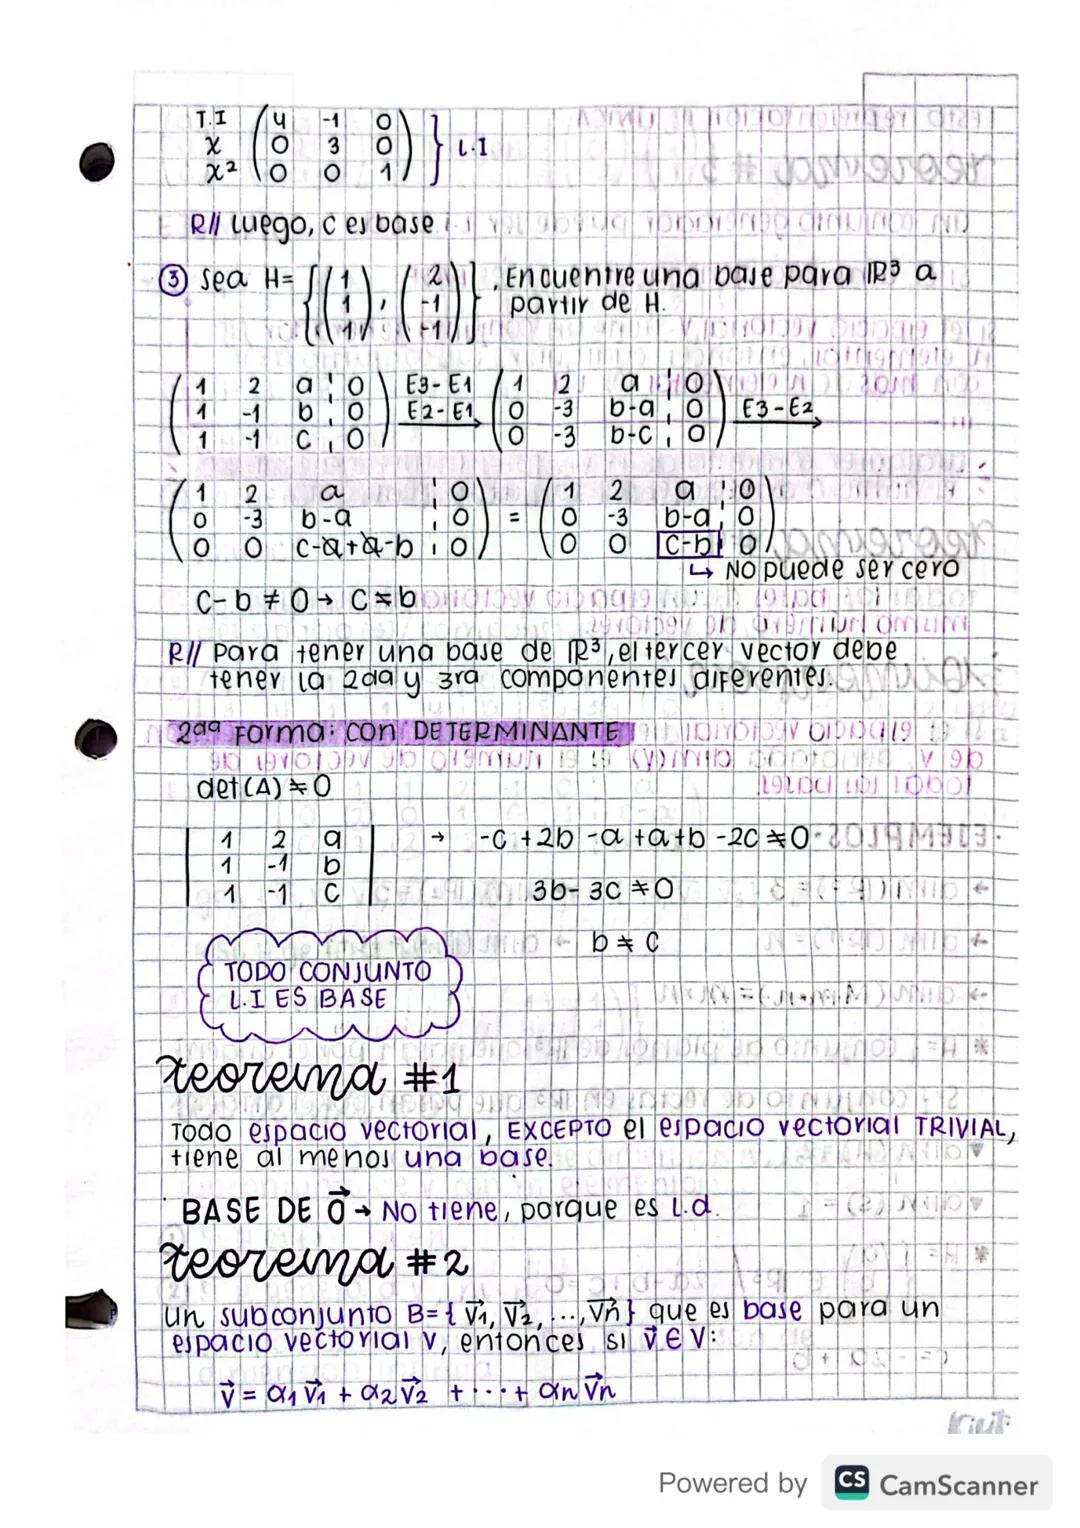 T.I ( 4 -1 0 )
x ( 0 3 0 ) } L.I
x² ( 0 0 1 )
R// Luego, C es base.
③ Sea H= { ( 1 1 1 ), ( 2 -1 -1 ) }. Encuentre una base para ℝ³ a
partir de H.
( 1 2 a ¦ 0 ) E3-E1 ( 1 2 a ¦ 0 )
( 1 -1 b ¦ 0 ) E2-E1 → ( 0 -3 b-a ¦ 0 ) E3-E2 →
( 1 -1 c ¦ 0 ) ( 0 -3 b-c ¦ 0 )
( 1 2 a ¦ 0 ) ( 1 2 a ¦ 0 )
( 0 -3 b-a ¦ 0 ) = ( 0 -3 b-a ¦ 0 )
( 0 0 c-a+a-b ¦ 0 ) ( 0 0 c-b ¦ 0 )
↳ No puede ser cero
c-b ≠ 0 → c ≠ b
R// Para tener una base de ℝ³, el tercer vector debe
tener la 2da y 3ra componentes diferentes.
2da Forma: CON DETERMINANTE
det(A) ≠ 0
| 1 2 a | → -c + 2b - a + a + b - 2c ≠ 0
| 1 -1 b |
| 1 -1 c | 3b - 3c ≠ 0
b ≠ c
TODO CONJUNTO
L.I ES BASE
Teorema #1
Todo espacio vectorial, EXCEPTO el espacio vectorial TRIVIAL,
tiene al menos una base.
BASE DE 0⃗ → No tiene, porque es L.d.
Teorema #2
Un subconjunto B={ v⃗1, v⃗2, ..., v⃗n } que es base para un
espacio vectorial V, entonces si v⃗ ∈ V:
v⃗ = α1 v⃗1 + α2 v⃗2 + ··· + αn v⃗n
Powered by CS CamScanner